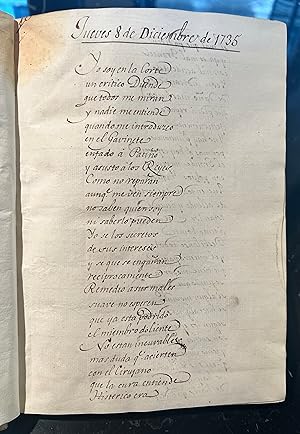 Jueves 8 de Diciembre de 1735
Yo soy en la Corte
un critico Duende
que todos me miran
y nadie me entiende
quando me introduzco
en el Gavinete
enfado a Patiño
y asusto a los Reyes
Como no reparan
aunq.e me ven siempre
no saben quien soy
ni saberlo pueden
Yo se los secretos
de sus intereses
y se que se engañan
reciprocamente
Remedio a sus males
suave no esperen
que ya està podrido
el miembro doliente
No estan incurables
mas duda q.e acierten
con el Cirujano
que la cura entiende
Histerico era